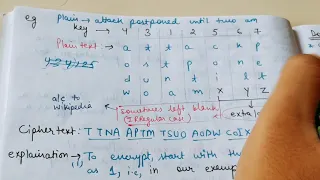 eg Plain → attack postponed until two am
key → 4 3 1 2 5 6 7
Plaintext → a t t a c k p
o s t p o n e
d u n t i l t
w o a m x y z
a/c to wikipedia
Sometimes left blank
(IRregular case)
extra
Ciphertext: TTNA APTM TSUO AODW COIX
explaination → To encrypt, start with th
(1) as 1, i.e, in our exem